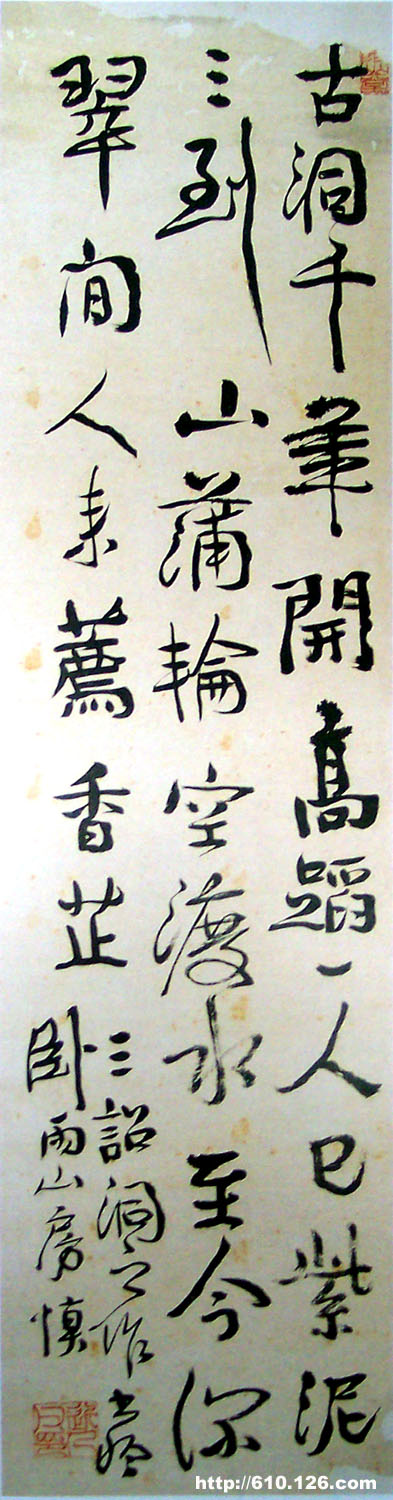 古洞千年閉高蹈一人已紫泥
三到山蒲輪空渡水至今深
翠間人來薦香芷
三詔洞之作
臥雨山房慎
http://610.126.com